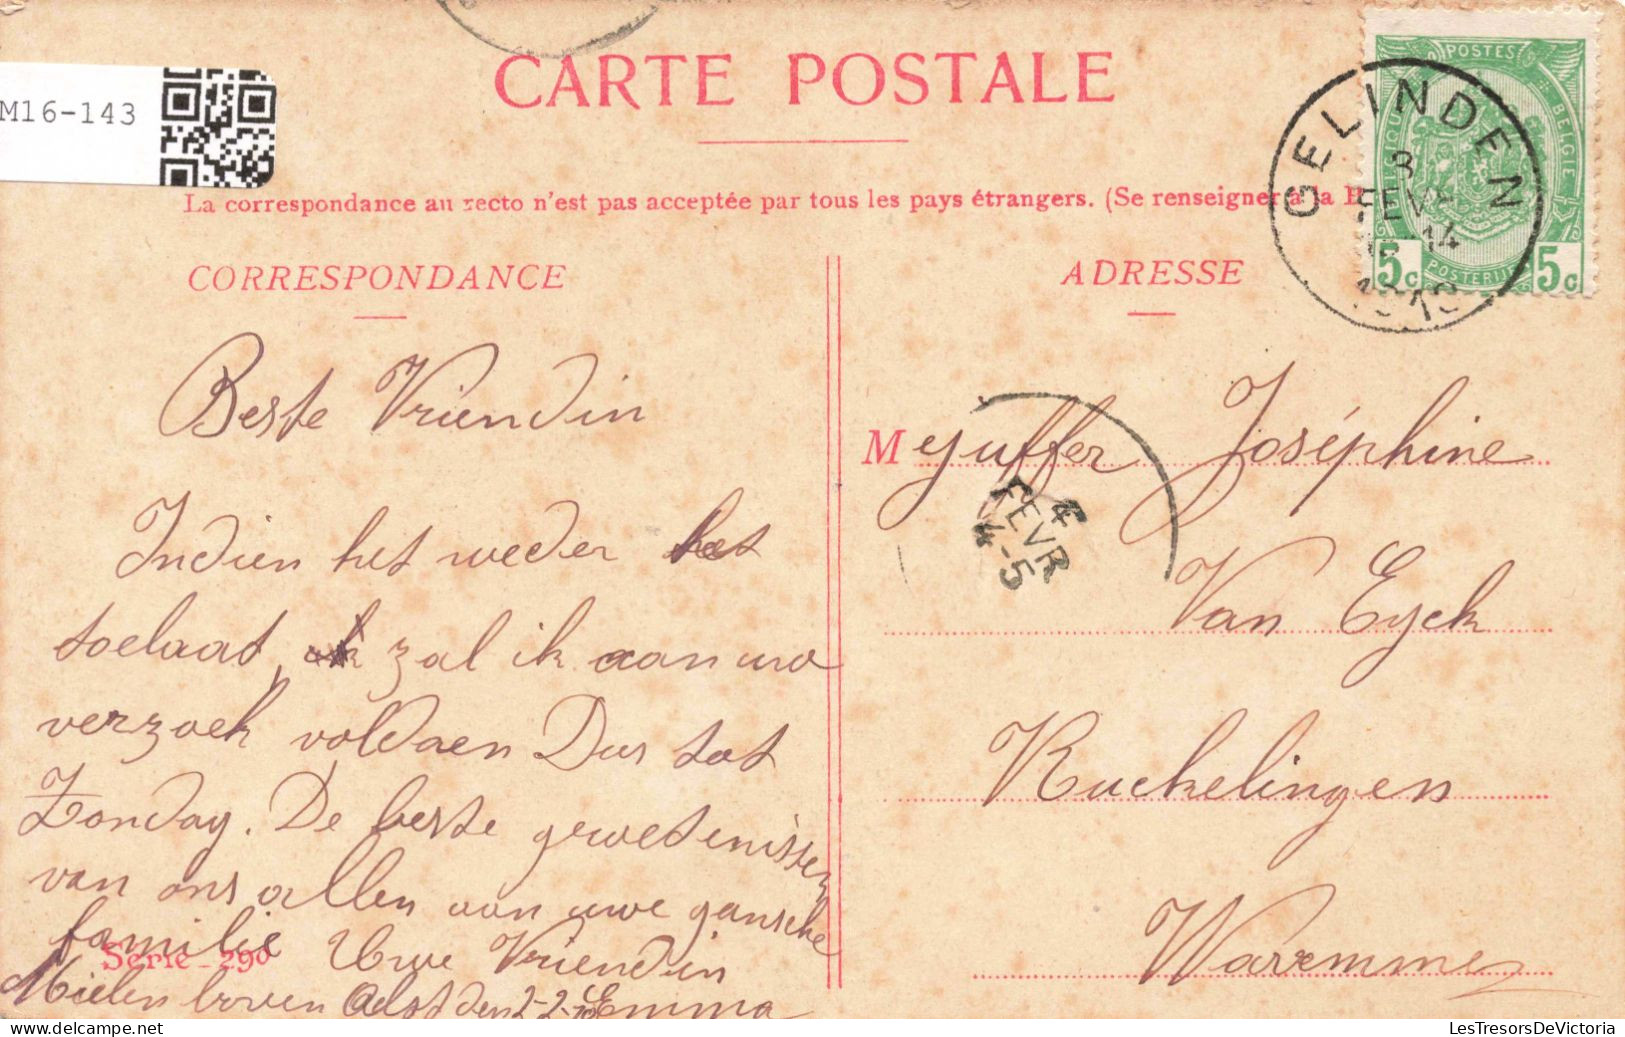 CARTE POSTALE
M16-143
La correspondance au recto n'est pas acceptée par tous les pays étrangers. (Se renseigner à la
POSTES
BELGIQUE
BELGIE
POSTERIJEN
5c 5c
GELINDEN
3
FEVR
14
1910
CORRESPONDANCE
Beste Vriendin
Indien het weder het
toelaat, zal ik aan uw
verzoek voldoen Dus tot
Zondag. De beste gewetenissen
van ons allen aan uwe gansche
familie Uwe Vriendin
Mielen boven Aelst den 2-2-10 Emma
Série 290
ADRESSE
Mejuffer Joséphine
4
FEVR
4-5
Van Eyck
Ruckelingen
Waremme
LesTresorsDeVictoria